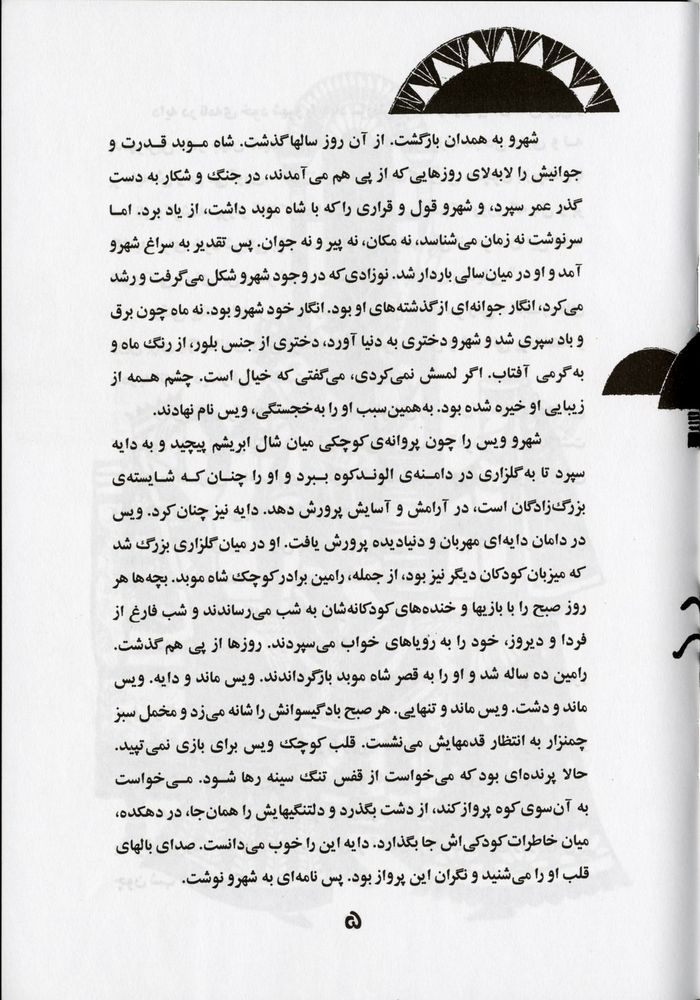 شهرو به همدان بازگشت. از آن روز سالها گذشت. شاه موبد قدرت و
جوانیش را لابه‌لای روزهایی که از پی هم می‌آمدند، در جنگ و شکار به دست
گذر عمر سپرد، و شهرو قول و قراری را که با شاه موبد داشت، از یاد برد. اما
سرنوشت نه زمان می‌شناسد، نه مکان، نه پیر و نه جوان. پس تقدیر به سراغ شهرو
آمد و او در میان‌سالی باردار شد. نوزادی که در وجود شهرو شکل می‌گرفت و رشد
می‌کرد، انگار جوانه‌ای از گذشته‌های او بود. انگار خود شهرو بود. نه ماه چون برق
و باد سپری شد و شهرو دختری به دنیا آورد، دختری از جنس بلور، از رنگ ماه و
به گرمی آفتاب. اگر لمسش نمی‌کردی، می‌گفتی که خیال است. چشم همه از
زیبایی او خیره شده بود. به‌همین‌سبب او را به‌خجستگی، ویس نام نهادند.
شهرو ویس را چون پروانه‌ی کوچکی میان شال ابریشم پیچید و به دایه
سپرد تا به گلزاری در دامنه‌ی الوندکوه ببرد و او را چنان که شایسته‌ی
بزرگ‌زادگان است، در آرامش و آسایش پرورش دهد. دایه نیز چنان کرد. ویس
در دامان دایه‌ای مهربان و دنیادیده پرورش یافت. او در میان گلزاری بزرگ شد
که میزبان کودکان دیگر نیز بود، از جمله، رامین برادر کوچک شاه موبد. بچه‌ها هر
روز صبح را با بازیها و خنده‌های کودکانه‌شان به شب می‌رساندند و شب فارغ از
فردا و دیروز، خود را به رؤیاهای خواب می‌سپردند. روزها از پی هم گذشت.
رامین ده ساله شد و او را به قصر شاه موبد بازگرداندند. ویس ماند و دایه. ویس
ماند و دشت. ویس ماند و تنهایی. هر صبح باد گیسوانش را شانه می‌زد و مخمل سبز
چمنزار به انتظار قدمهایش می‌نشست. قلب کوچک ویس برای بازی نمی‌تپید.
حالا پرنده‌ای بود که می‌خواست از قفس تنگ سینه رها شود. می‌خواست
به آن‌سوی کوه پرواز کند، از دشت بگذرد و دلتنگیهایش را همان‌جا، در دهکده،
میان خاطرات کودکی‌اش جا بگذارد. دایه این را خوب می‌دانست. صدای بالهای
قلب او را می‌شنید و نگران این پرواز بود. پس نامه‌ای به شهرو نوشت.
۵